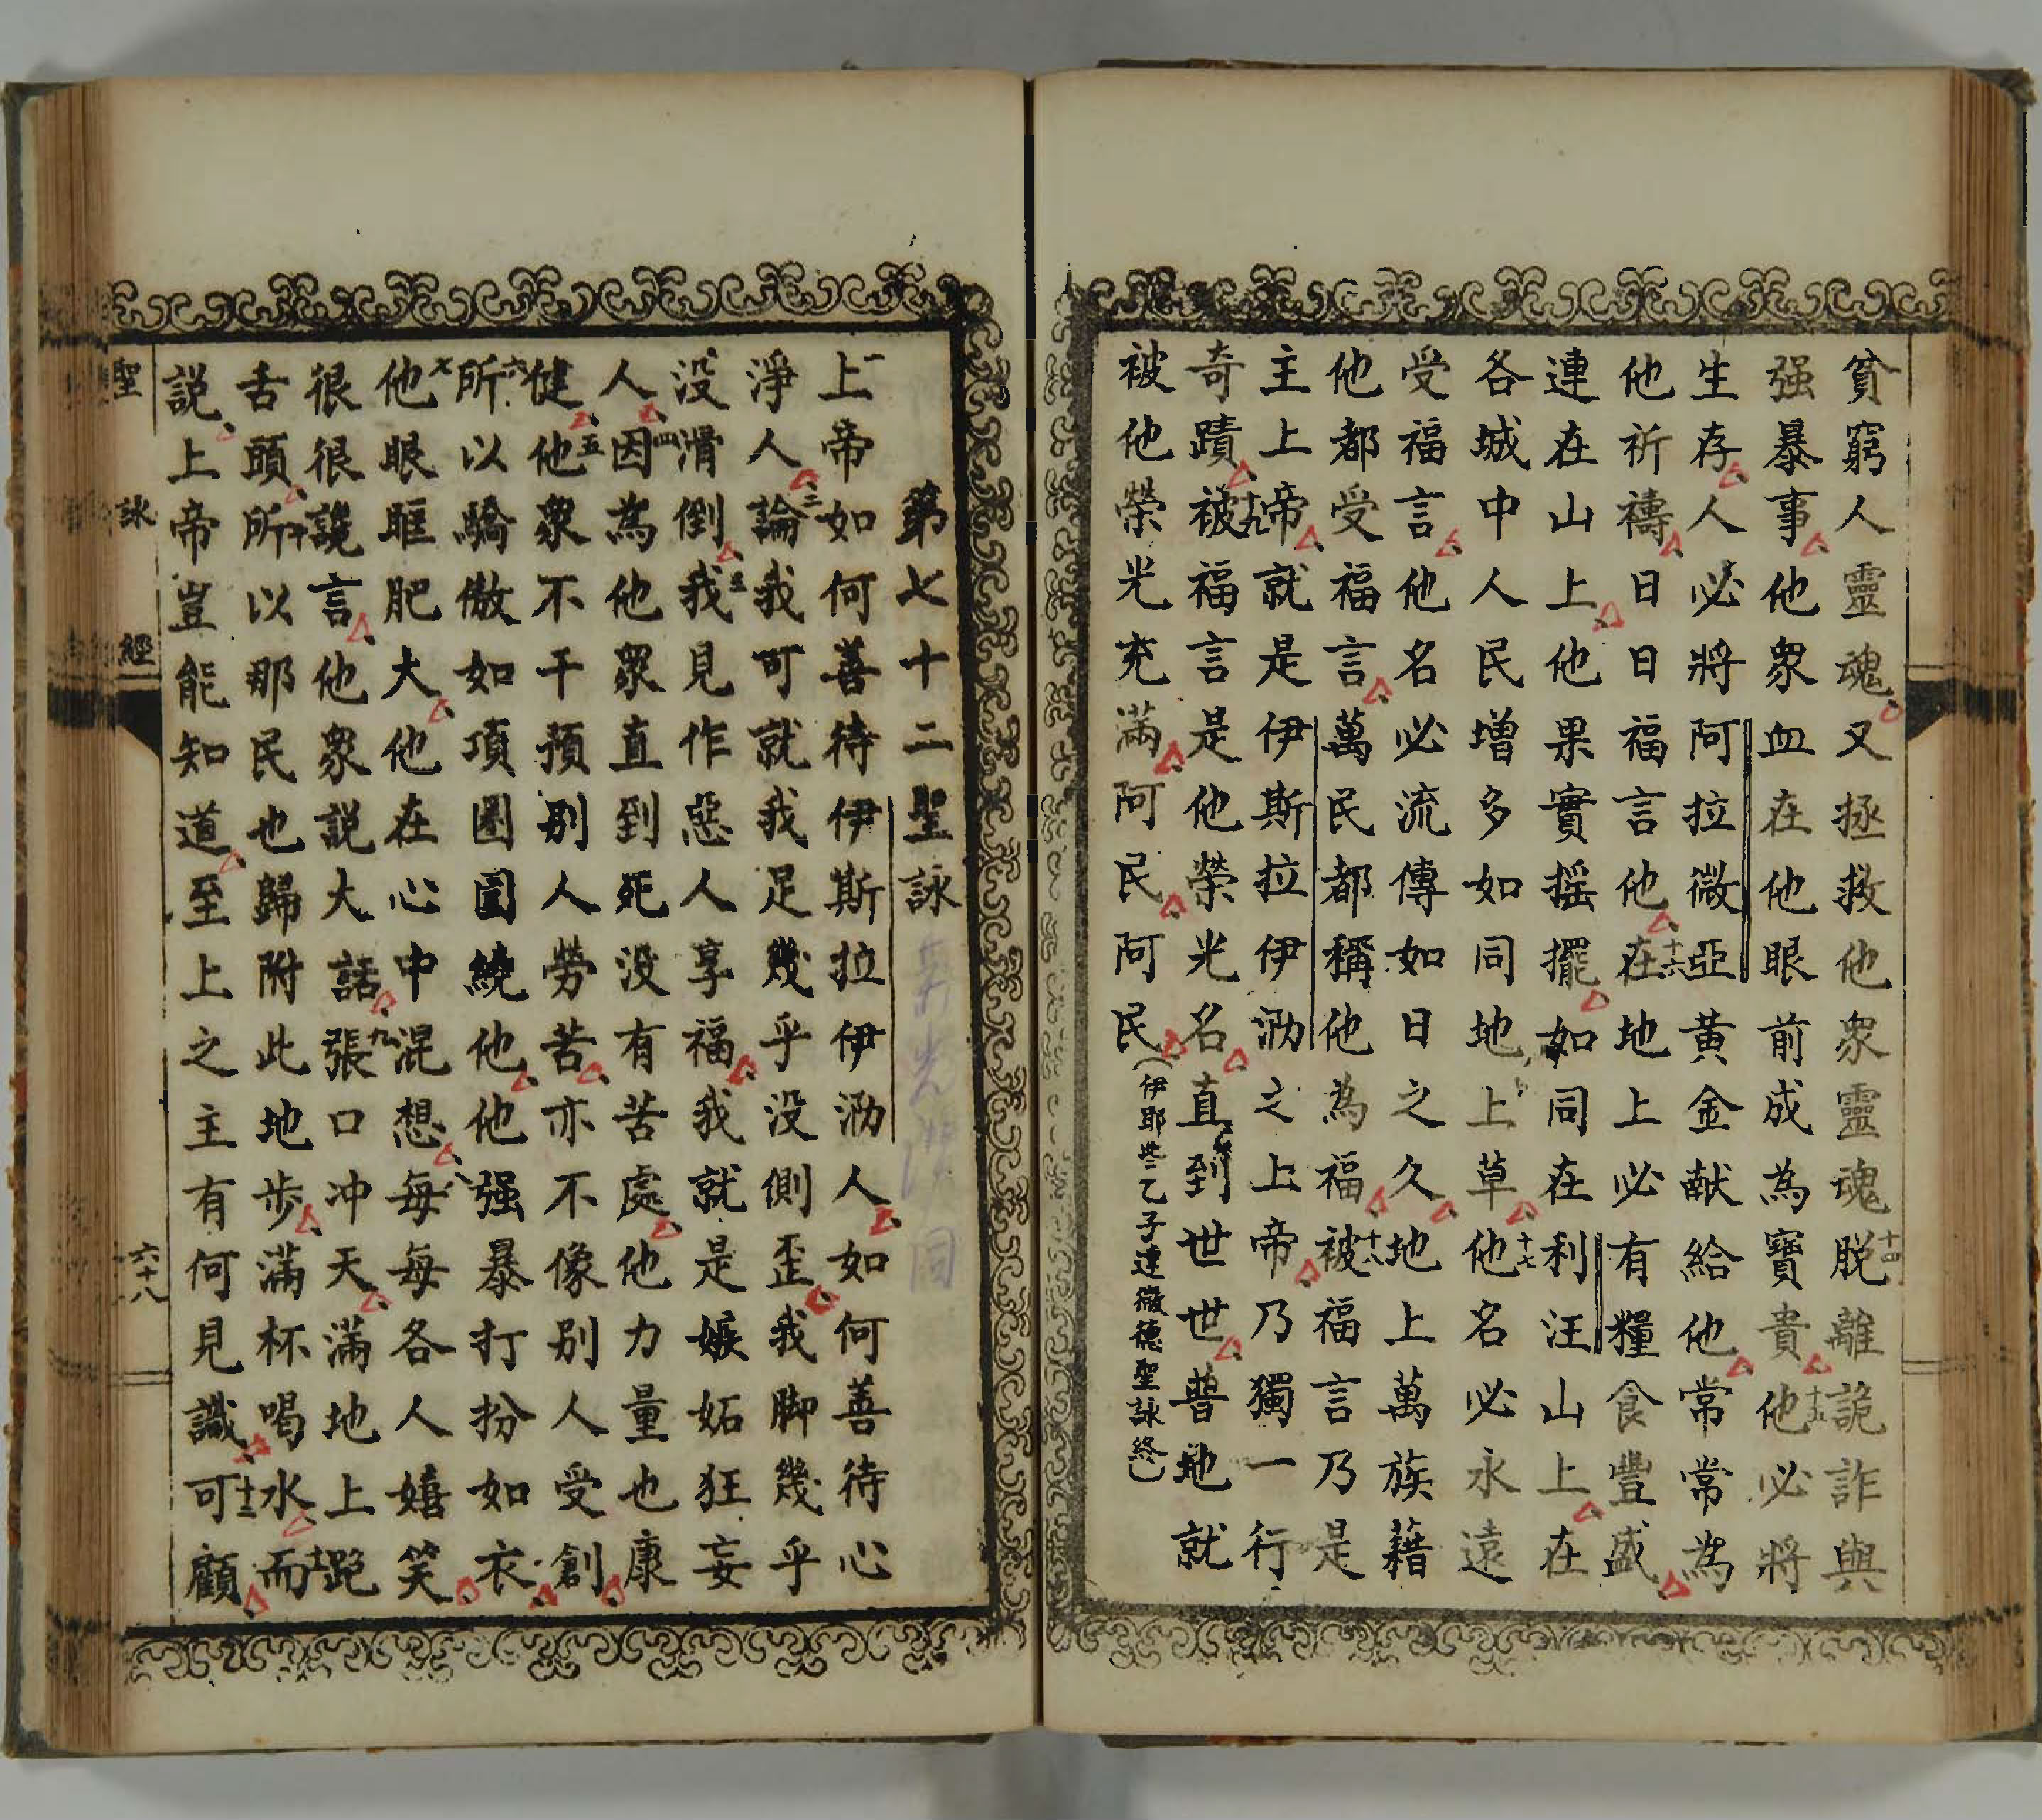 貧窮人靈魂又拯救他衆靈魂十四脫離詭詐與
强暴事他衆血在他眼前成為寶貴十五他必將
生存人必將阿拉微亞黄金献給他常常為
他祈禱日日福言他十六在地上必有糧食豐盛
連在山上他果實摇擺如同在利汪山上在
各城中人民增多如同地上草十七他名必永遠
受福言他名必流傳如日之久地上萬族藉
他都受福言萬民都稱他為福十八被福言乃是
主上帝就是伊斯拉伊泐之上帝乃獨一行
奇蹟十九被福言是他榮光名直到世世普地就
被他榮光充滿阿民阿民(伊耶些乙子達微德聖詠終)
第七十二聖詠
一上帝如何善待伊斯拉伊泐人如何善待心
淨人二論我可就我足幾乎没側歪我脚幾乎
没滑倒三我見作惡人享福我就是嫉妬狂妄
人四因為他衆直到死没有苦處他力量也康
健五他衆不干預别人勞苦亦不像别人受創
六所以驕傲如項圏圍繞他他强暴打扮如衣
七他眼眶肥大他在心中混想八每每各人嬉笑
很很讒言他衆説大話九張口冲天滿地上跑
舌頭十所以那民也歸附此地步滿杯喝水十一而
説上帝豈能知道至上之主有何見識十二可顧
聖詠經
六十八